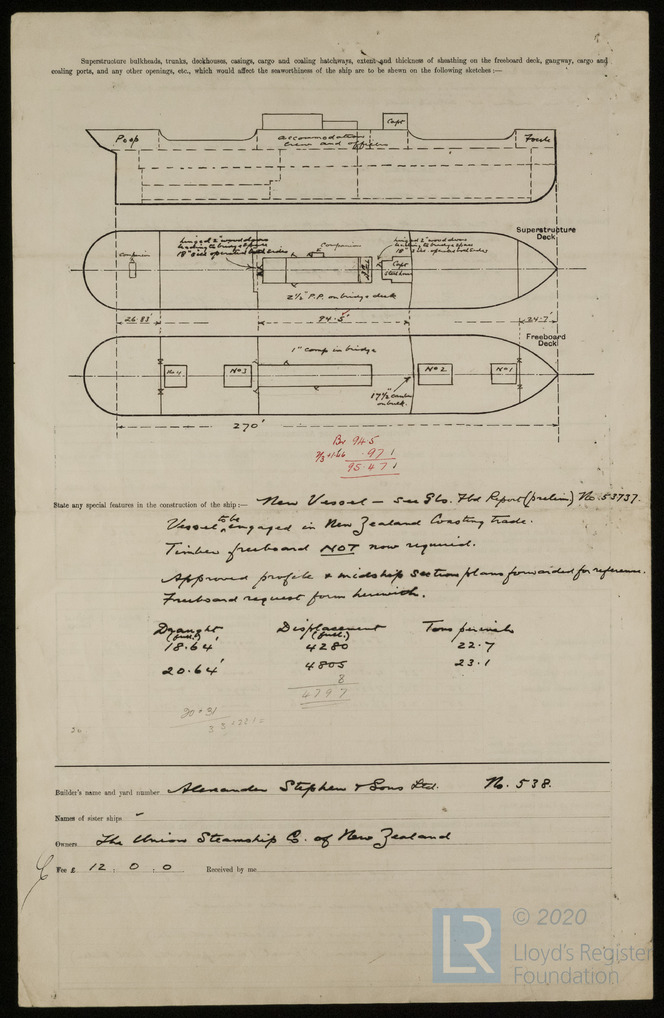 Superstructure bulkheads, trunks, deckhouses, casings, cargo and coaling hatchways, extent and thickness of sheathing on the freeboard deck, gangway, cargo and
coaling ports, and any other openings, etc., which would affect the seaworthiness of the ship are to be shewn on the following sketches :—
Poop
accommodation
crew and officers
Capt
Focsle
Superstructure
Deck
hinged 2" wood doors
leading to bridge space
18" sills operated both sides
Companion
hinged 2" wood doors
leading to bridge space
18" sills operated both sides
companion
Capt
2½" P.P. on bridge deck
26.83'
94.5'
24.7'
Freeboard
Deck
1" comp in bridge
No 4
No 3
No 2
No 1
17½" camber
on bulk.
270'
Br 94.5
.971
95.471
State any special features in the construction of the ship :— New Vessel — see Gls. Fbd Report (prelim) No. 53737.
Vessel to be engaged in New Zealand Coasting trade.
Timber freeboard NOT now required.
Approved profile & midship section plans forwarded for reference.
Freeboard request form herewith.
Draught Displacement Tons per inch
18.64' 4280 22.7
20.64' 4805 23.1
8
4797
Builder's name and yard number Alexander Stephen & Sons Ltd. No. 538.
Names of sister ships -
Owners The Union Steamship Co. of New Zealand
Fee £ 12 : 0 : 0 Received by me
LR © 2020
Lloyd's Register
Foundation